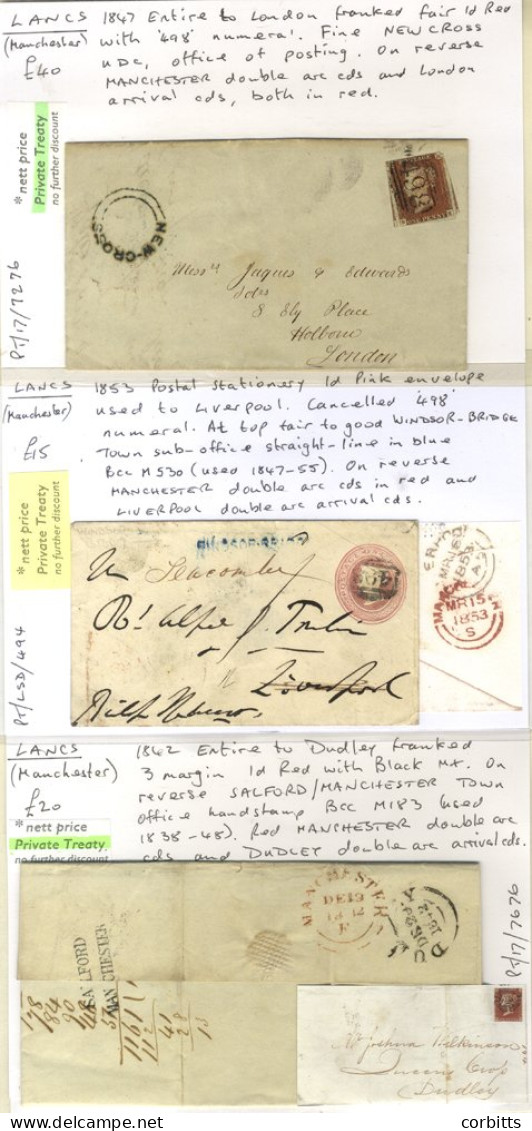 LANCS
(Manchester)
£40
1847 Entire to London franked fair 1d Red
with '498' numeral. Fine NEW CROSS
UDC, office of posting. On reverse
MANCHESTER double arc cds and London
arrival cds, both in red.
* nett price
Private Treaty
no further discount
PT/17/7276
NEW-CROSS
498
Messrs Jaques & Edwards
8 Ely Place
Holborn
London
LANCS
(Manchester)
£15
1853 Postal stationery 1d Pink envelope
used to Liverpool. Cancelled '498'
numeral. At top fair to good WINDSOR-BRIDGE
Town sub-office straight-line in blue
BCC M530 (used 1847-55). On reverse
MANCHESTER double arc cds in red and
LIVERPOOL double arc arrival cds.
* nett price
Private Treaty
no further discount
PT/LSD/494
WINDSOR-BRIDGE
Seacombe
Liverpool
MR 15
1853
S
LANCS
(Manchester)
£20
1842 Entire to Dudley franked
3 margin 1d Red with Black MX. On
reverse SALFORD/MANCHESTER Town
office handstamp BCC M183 (used
1838-48). Red MANCHESTER double arc
cds and DUDLEY double arc arrival cds.
* nett price
Private Treaty
no further discount
PT/17/7676
MANCHESTER
DE 19
1842
F
SALFORD
MANCHESTER
178
184
90
Mr Joshua Wilkinson
Queens Cross
Dudley